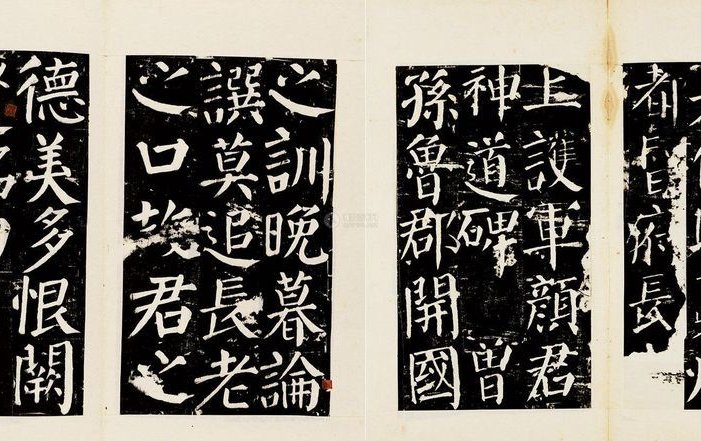 都督府長
上護軍顏君
神道碑 曾
孫魯郡開國
之訓晚暮論
譔莫追長老
之口故君之
德美多恨闕